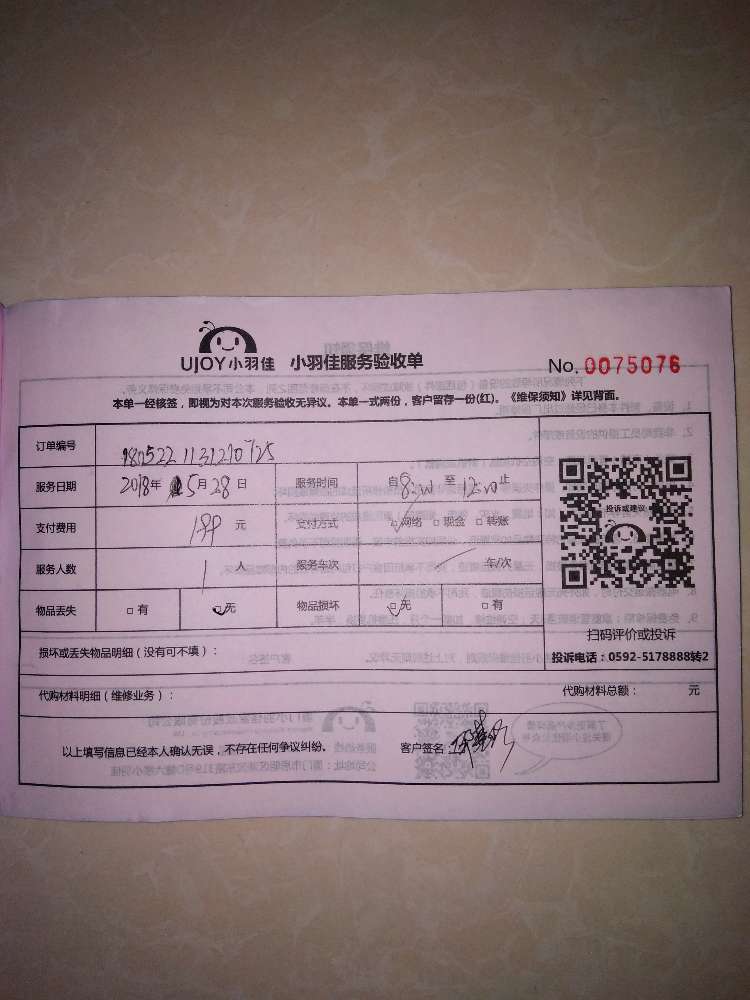 UJOY小羽佳 小羽佳服务验收单 No. 0075076
本单一经核签，即视为对本次服务验收无异议。本单一式两份，客户留存一份(红)。《维保须知》详见背面。
订单编号 1805221131210725
服务日期 2018年 5月 28日 服务时间 自 8:00 至 12:00 止
支付费用 199 元 支付方式 网络 现金 转账
服务人数 1 人 服务车次 车/次
物品丢失 有 无 物品损坏 无 有
投诉或建议
扫码评价或投诉
投诉电话：0592-5178888转2
损坏或丢失物品明细（没有可不填）：
代购材料明细（维修业务）： 代购材料总额： 元
以上填写信息已经本人确认无误，不存在任何争议纠纷。 客户签名：